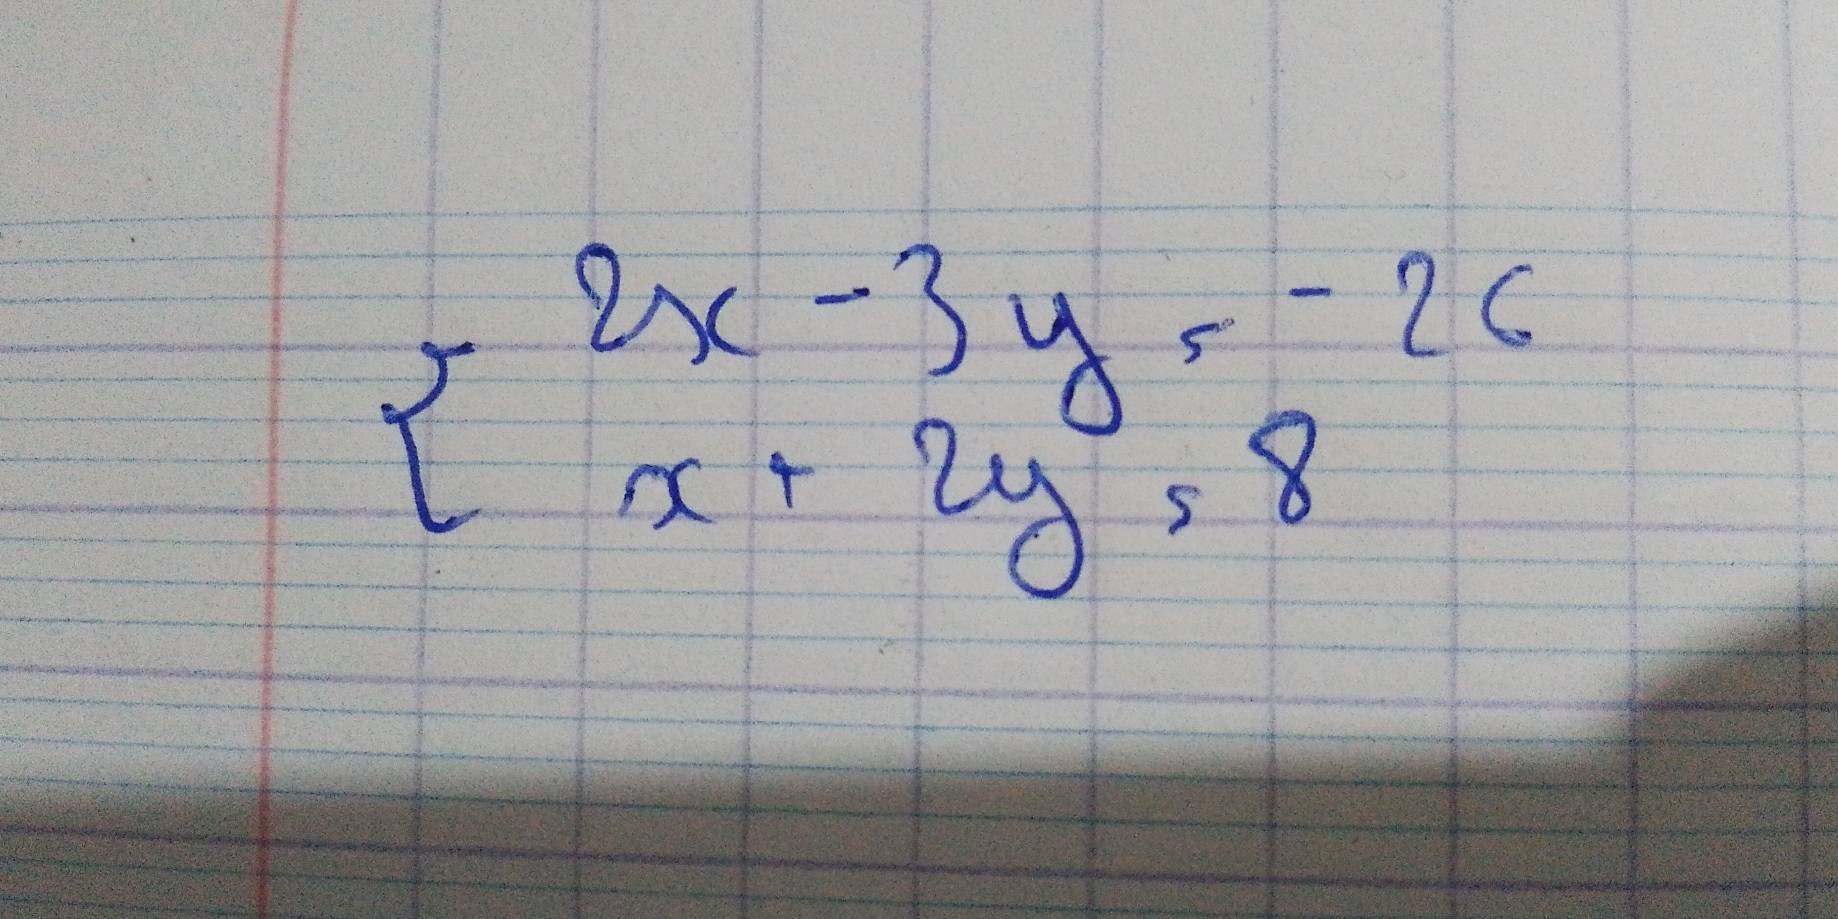 2x - 3y = - 26
x + 2y = 8